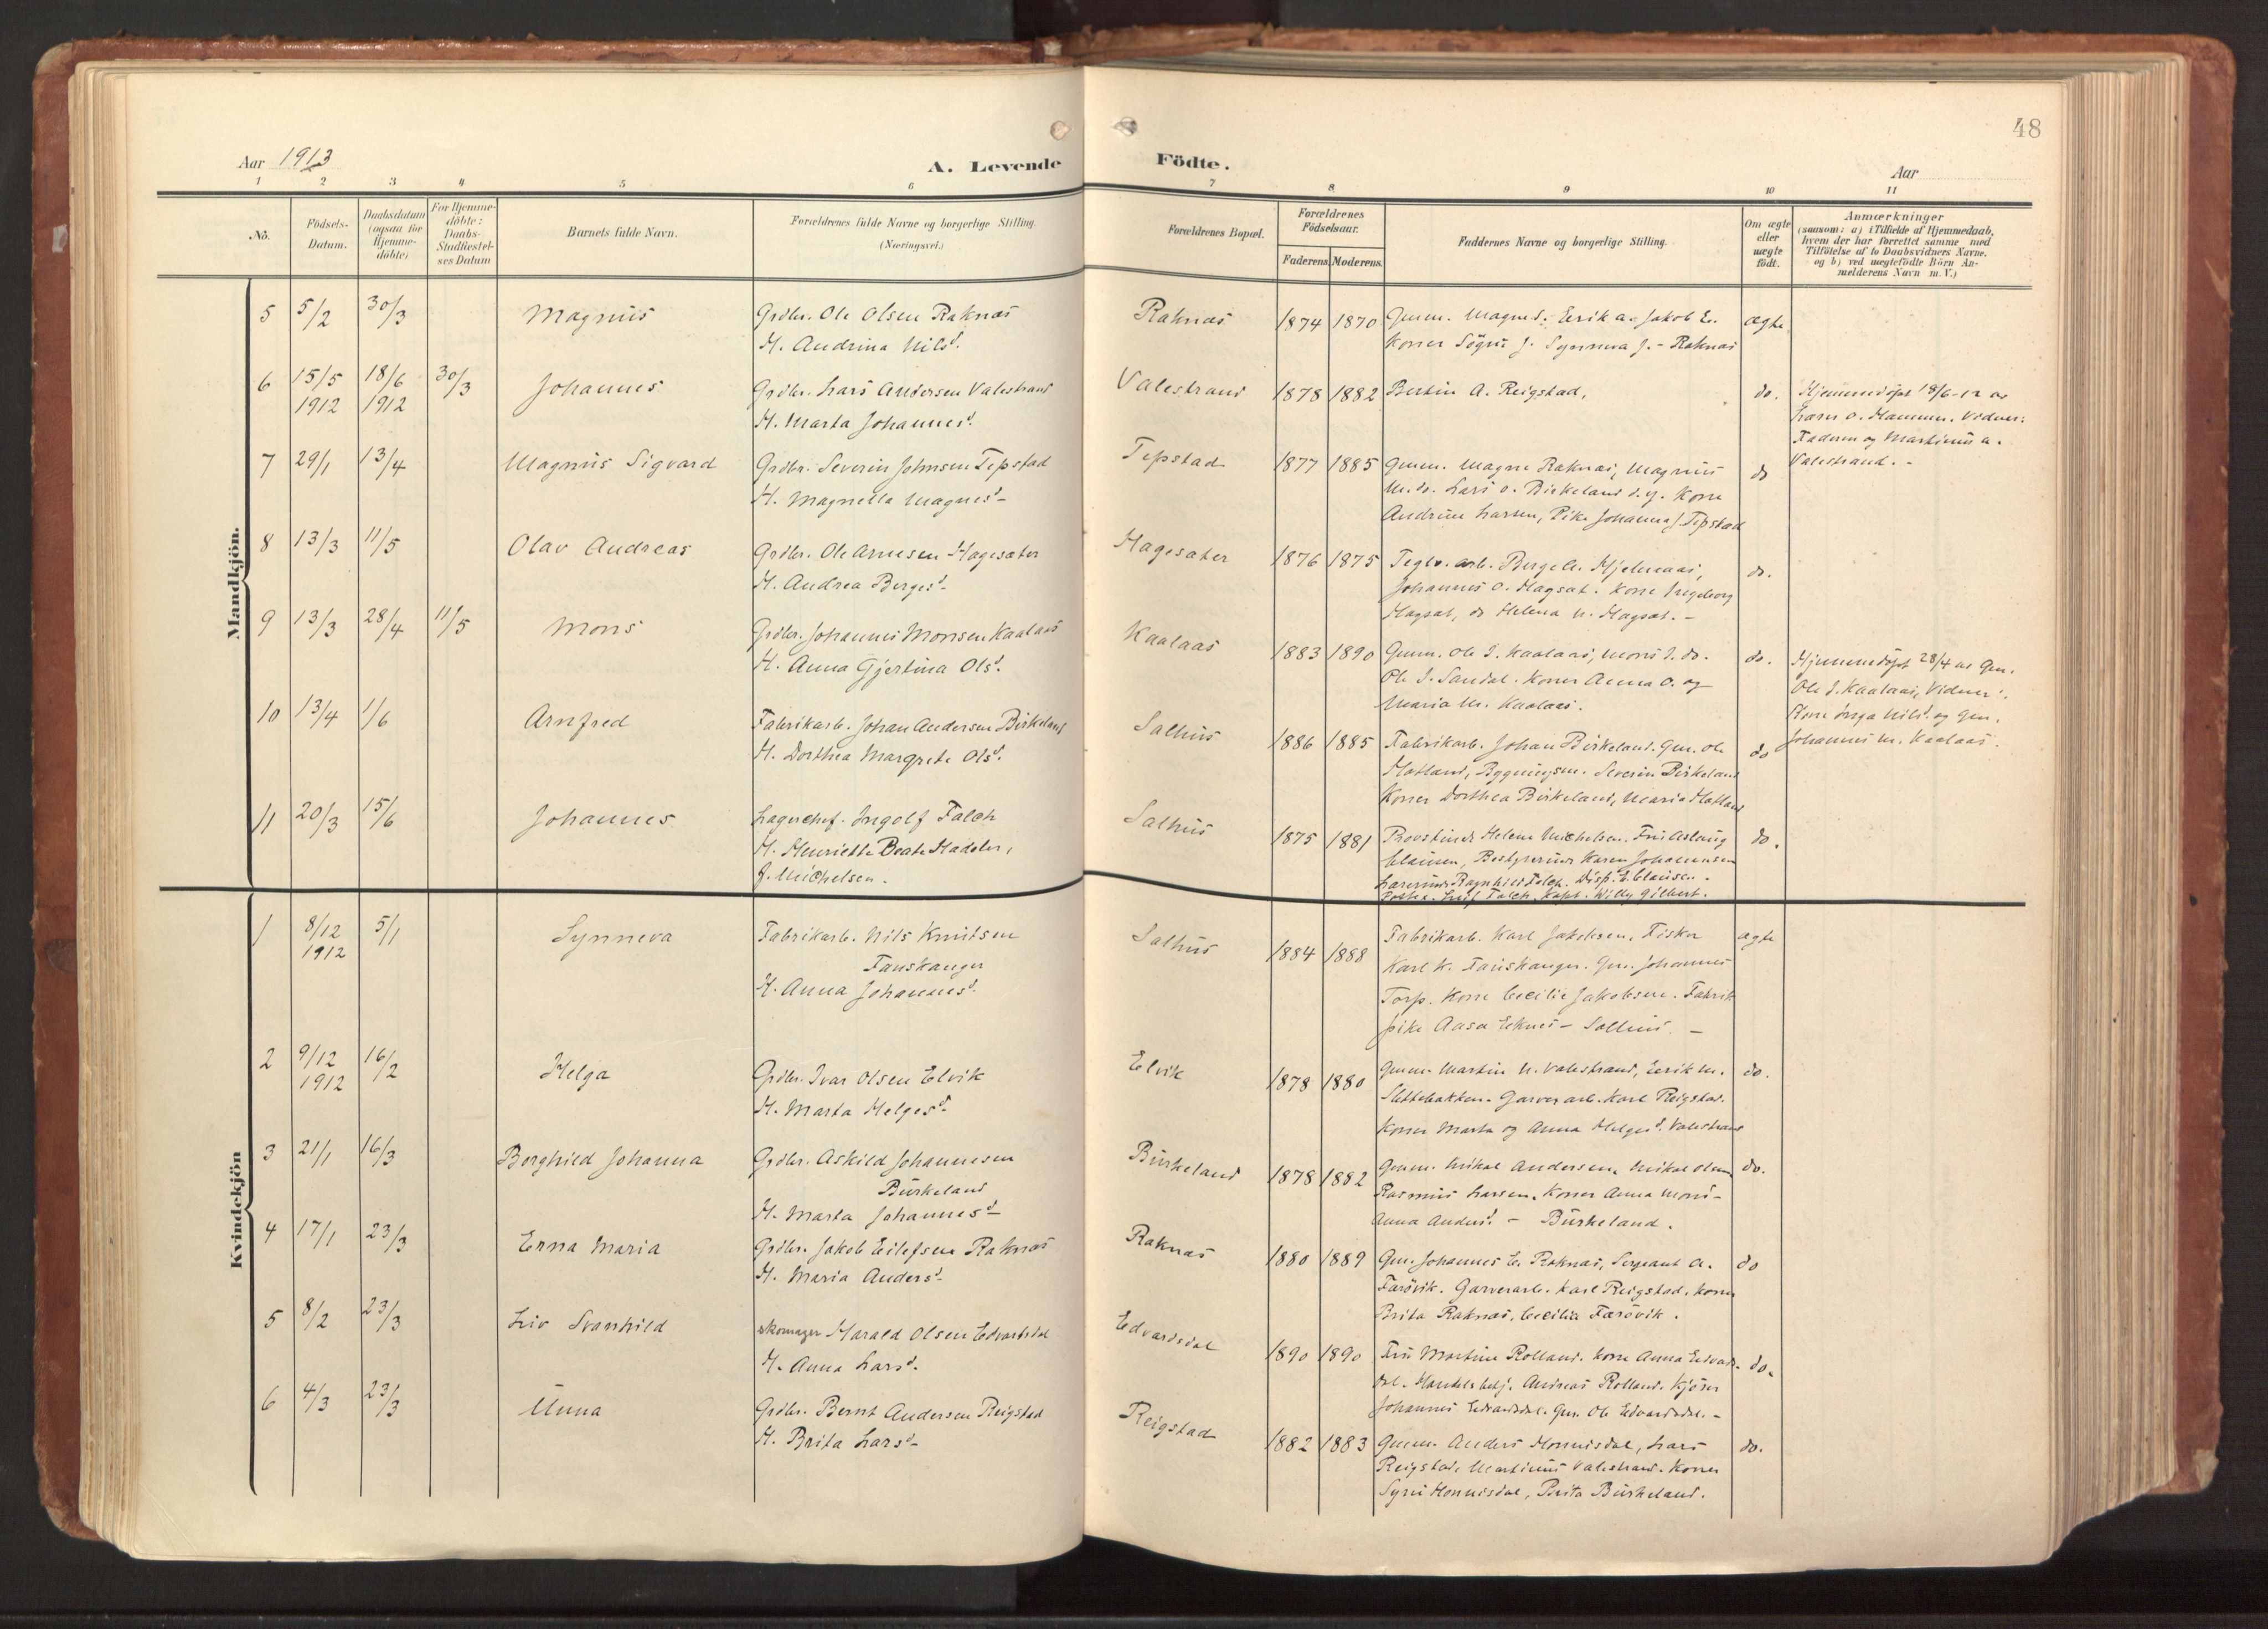 48
Aar 1913
A. Levende
Födte.
Aar
1 2 3 4 5 6 7 8 9 10 11
No.
Födsels-
Datum.
Daabsdatum
(ogsaa for
Hjemme-
döbte)
For Hjemme-
döbte:
Daabs-
Stadfæstel-
ses Datum
Barnets fulde Navn.
Forældrenes fulde Navne og borgerlige Stilling.
(Næringsvei.)
Forældrenes Bopæl.
Forældrenes
Födselsaar.
Faderens. Moderens.
Faddernes Navne og borgerlige Stilling.
Om ægte
eller
uægte
födt.
Anmærkninger
(saasom: a) i Tilfælde af Hjemmedaab,
hvem der har forrettet samme med
Tilföielse af to Daabsvidners Navne.
og b) ved uægtefödte Börn An-
melderens Navn m. V.)
Mandkjön.
5 5/2 30/3 Magnus
Grdbr. Ole Olsen Raknæs
H. Andrina Nilsd.
Raknæs 1874 1870
Gmm. Magne S. Eerik A. Jakob E.
Koner Sögni J. Synneva J. - Raknæs
ægte
6 15/5 1912 18/6 1912 30/3 Johannes
Grdbr. Lars Andersen Valestrand
H. Marta Johannesd.
Valestrand 1878 1882
Bertin A. Reigstad.
do.
Hjemmedöpt 18/6-12 av
Lærer O. Hammer. Vidner:
Faderen og Martinus A.
Valestrand. -
7 29/1 13/4 Magnus Sigvard
Grdbr. Severin Johnsen Tepstad
H. Magnella Magnesd-
Tepstad 1877 1885
Gmm. Magne Raknæs, Magnus
M. do. Lars O. Birkeland d.y. Kone
Andrine Larsen, Pike Johanna J. Tepstad
do
8 13/3 11/5 Olav Andreas
Grdbr. Ole Arnesen Hagesæter
H. Andrea Bergesd-
Hagesæter 1876 1875
Teglv. arb. Berge A. Hjelmaas,
Johannes O. Hagsæt. Kone Ingeborg
Hagsæt, do Helena N. Hagsæt. -
do.
9 13/3 28/4 11/5 Mons
Grdbr. Johannes Monsen Kaalaas
H. Anna Gjertina Olsd.
Kaalaas 1883 1890
Gmm. Ole J. Kaalaas, Mons J. do.
Ole J. Sandal. Koner Anna O. og
Maria M. Kaalaas.
do.
Hjemmedöpt 28/4 av Gm.
Ole J. Kaalaas, Vidner:
Kone Inga Nilsd. og Gm.
Johannes M. Kaalaas.
10 13/4 1/6 Arnfred
Fabrikarb. Johan Andersen Birkeland
H. Dorthea Margrete Olsd.
Salhus 1886 1885
Fabrikarb. Johan Birkeland. Gm. Ole
Hatland, Bygningsm. Severin Birkeland
Koner Dorthea Birkeland, Maria Hatland
do
11 20/3 15/6 Johannes
Lagerchef. Ingolf Falch
H. Henriette Beate Hadeler,
f. Michelsen.
Salhus 1875 1881
Provstinde Helene Michelsen. Fru Aslaug
Clausen, Bestyrerinde Karen Johannesen
Lærerinde Ragnhild Falch. Disp. E. Clausen.
Leif Falch. Kapt. Willy Gilbert.
do.
Kvindekjön
1 8/12 1912 5/1 Synneva
Fabrikarb. Nils Knutsen
Fauskanger
H. Anna Johannesd.
Salhus 1884 1888
Fabrikarb. Karl Jakobsen, Fisker
Karl K. Fauskanger. Gm. Johannes
Torp. Kone Cecilie Jakobsen. Fabrik
pike Aasa Eeknes - Salhus. -
ægte
2 9/12 1912 16/2 Helga
Grdbr. Ivar Olsen Elvik
H. Marta Helgesd-
Elvik 1878 1880
Gmm. Martin N. Valestrand, Eerik M.
Slettebakken. Garverarb. Karl Reigstad.
Koner Marta og Anna Helgesd. Valestrand
do.
3 21/1 16/3 Borghild Johanna
Grdbr. Askild Johannesen
Burkeland
H. Marta Johannesd-
Burkeland 1878 1882
Gmm. Mikal Andersen, Mikal Olsen
Rasmus Larsen. Koner Anna Mons-
Anna Andersd. - Burkeland.
do.
4 17/1 23/3 Erna Maria
Grdbr. Jakob Eilefsen Raknæs
H. Maria Andersd-
Raknæs 1880 1889
Gm. Johannes E. Raknæs, Sergeant A.
Farövik. Garverarb. Karl Reigstad. Koner
Brita Raknæs, Cecilia Farövik.
do
5 8/2 23/3 Liv Svanhild
Skomager Harald Olsen Edvardsdal
H. Anna Larsd.
Edvardsdal 1890 1890
Fru Martine Rolland. Kone Anna Edvards-
dal. Handelsbetj. Andreas Rolland. Kjører
Johannes Edvardsdal. Gm. Ole Edvardsdal. -
do.
6 4/3 23/3 Unna
Grdbr. Bernt Andersen Reigstad
H. Brita Larsd-
Reigstad 1882 1883
Gmm. Anders Honnisdal, Lars
Reigstad, Martinus Valestrand. Koner
Syni Honnisdal, Brita Burkeland.
do.